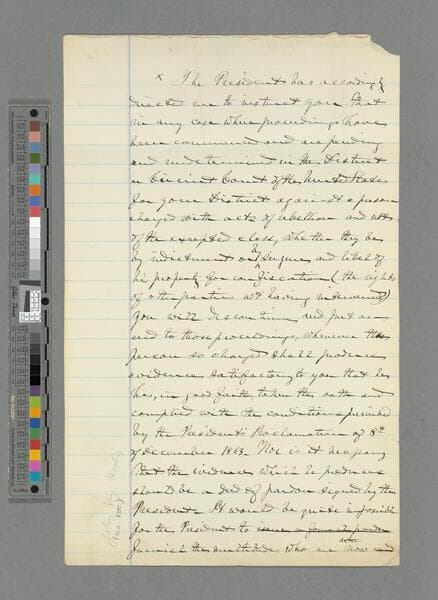 x The President has accordingly
directed me to instruct you that
in any case where proceedings have
been commenced and are pending
and undetermined in the District
or Circuit Court of the United States
for your District against a person
charged with acts of rebellion and not
of the excepted class, whether they be
by indictment or by seizure and libel of
his property for confiscation (the rights
of other parties not having intervened)
you will discontinue and put an
end to those proceedings, whenever the
person so charged shall produce
evidence satisfactory to you that he
has, in good faith taken the oath and
complied with the conditions prescribed
by the President's Proclamation of 8th
of December 1863. Nor is it necessary
that the evidence which he produces
should be a deed of pardon signed by the
President. It would be quite impossible
for the President to issue a formal pardon
furnish the multitude who are now and